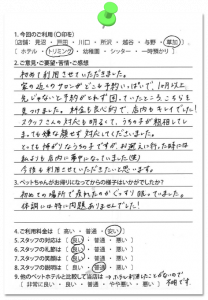 1. 今回のご利用(○印を)
(店舗: 見沼 ・ 戸田 ・ 川口 ・ 所沢 ・ 越谷 ・ 与野 ・ 草加)
( ホテル ・ トリミング ・ 幼稚園 ・ シッター ・ 一時預かり )
2. ご意見・ご要望・苦情・ご感想
初めて利用させていただきました。
家の近くのサロンがどこも予約いっぱいで、10月以上
先じゃないと予約がとれず困っていたところ、こちらを
見つけました。料金も良心的で、店内もキレイでした。
スタッフさんの対応も明るくて、うちの子が粗相してしまっ
ても嫌な顔せず対応してくださいました。
とても怖がりなうちの子ですが、お迎えに行った時には
私よりも店内に夢中になっていました(笑)
今後も利用させていただきたいと思います。
3. ペットちゃんがお帰りになってからの様子はいかがでしたか?
初めての場所で疲れたのかぐっすり眠っていました。
体調には特に問題ありませんでした!
4. ご利用料金は ( 高い ・ 普通 ・ 安い )
5. スタッフの対応は ( 良い ・ 普通 ・ 悪い )
6. スタッフの礼節は ( 良い ・ 普通 ・ 悪い )
7. スタッフの笑顔は ( 良い ・ 普通 ・ 悪い )
8. スタッフの説明は ( 良い ・ 普通 ・ 悪い )
9. 他のペットホテルと比較して当店は
( 非常に良い ・ 良い ・ 普通 ・ やや悪い ・ 悪い )